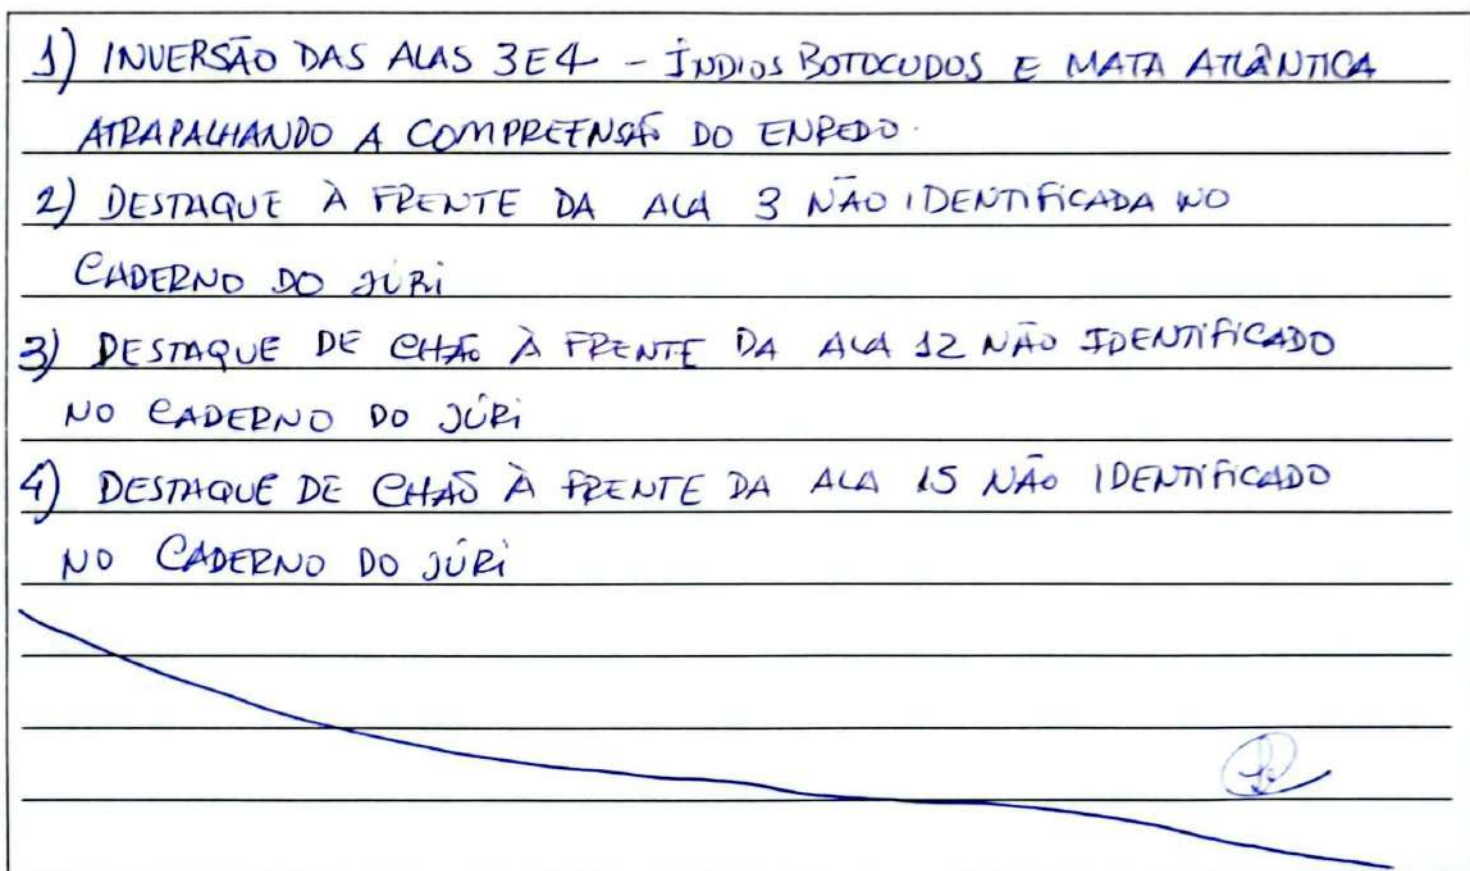 1) INVERSÃO DAS ALAS 3 E 4 - ÍNDIOS BOTOCUDOS E MATA ATLÂNTICA
ATRAPALHANDO A COMPREENSÃO DO ENREDO.
2) DESTAQUE À FRENTE DA ALA 3 NÃO IDENTIFICADA NO
CADERNO DO JÚRI
3) DESTAQUE DE CHÃO À FRENTE DA ALA 12 NÃO IDENTIFICADO
NO CADERNO DO JÚRI
4) DESTAQUE DE CHÃO À FRENTE DA ALA 15 NÃO IDENTIFICADO
NO CADERNO DO JÚRI